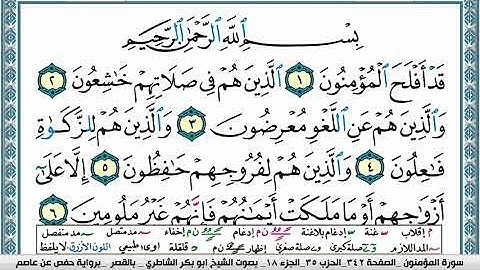 بِسْمِ اللَّهِ الرَّحْمَٰنِ الرَّحِيمِ
قَدْ أَفْلَحَ الْمُؤْمِنُونَ ١ الَّذِينَ هُمْ فِي صَلَاتِهِمْ خَاشِعُونَ ٢
وَالَّذِينَ هُمْ عَنِ اللَّغْوِ مُعْرِضُونَ ٣ وَالَّذِينَ هُمْ لِلزَّكَوٰةِ
فَاعِلُونَ ٤ وَالَّذِينَ هُمْ لِفُرُوجِهِمْ حَافِظُونَ ٥ إِلَّا عَلَىٰ
أَزْوَاجِهِمْ أَوْ مَا مَلَكَتْ أَيْمَانُهُمْ فَإِنَّهُمْ غَيْرُ مَلُومِينَ ٦
م إقلاب غنة إدغام بلاغنة ن م إدغام إخفاء مد متصل مد منفصل
المد اللازم صلة كبرى وے صلة صغرى إظهار ن م قلقلة اوى طبيعي اللون الأزرق لا يلفظ
سورة المؤمنون _ الصفحة ٣٤٢_ الحزب ٣٥_ الجزء ١٨ _ بصوت الشيخ ابو بكر الشاطري _ بالقصر _ برواية حفص عن عاصم